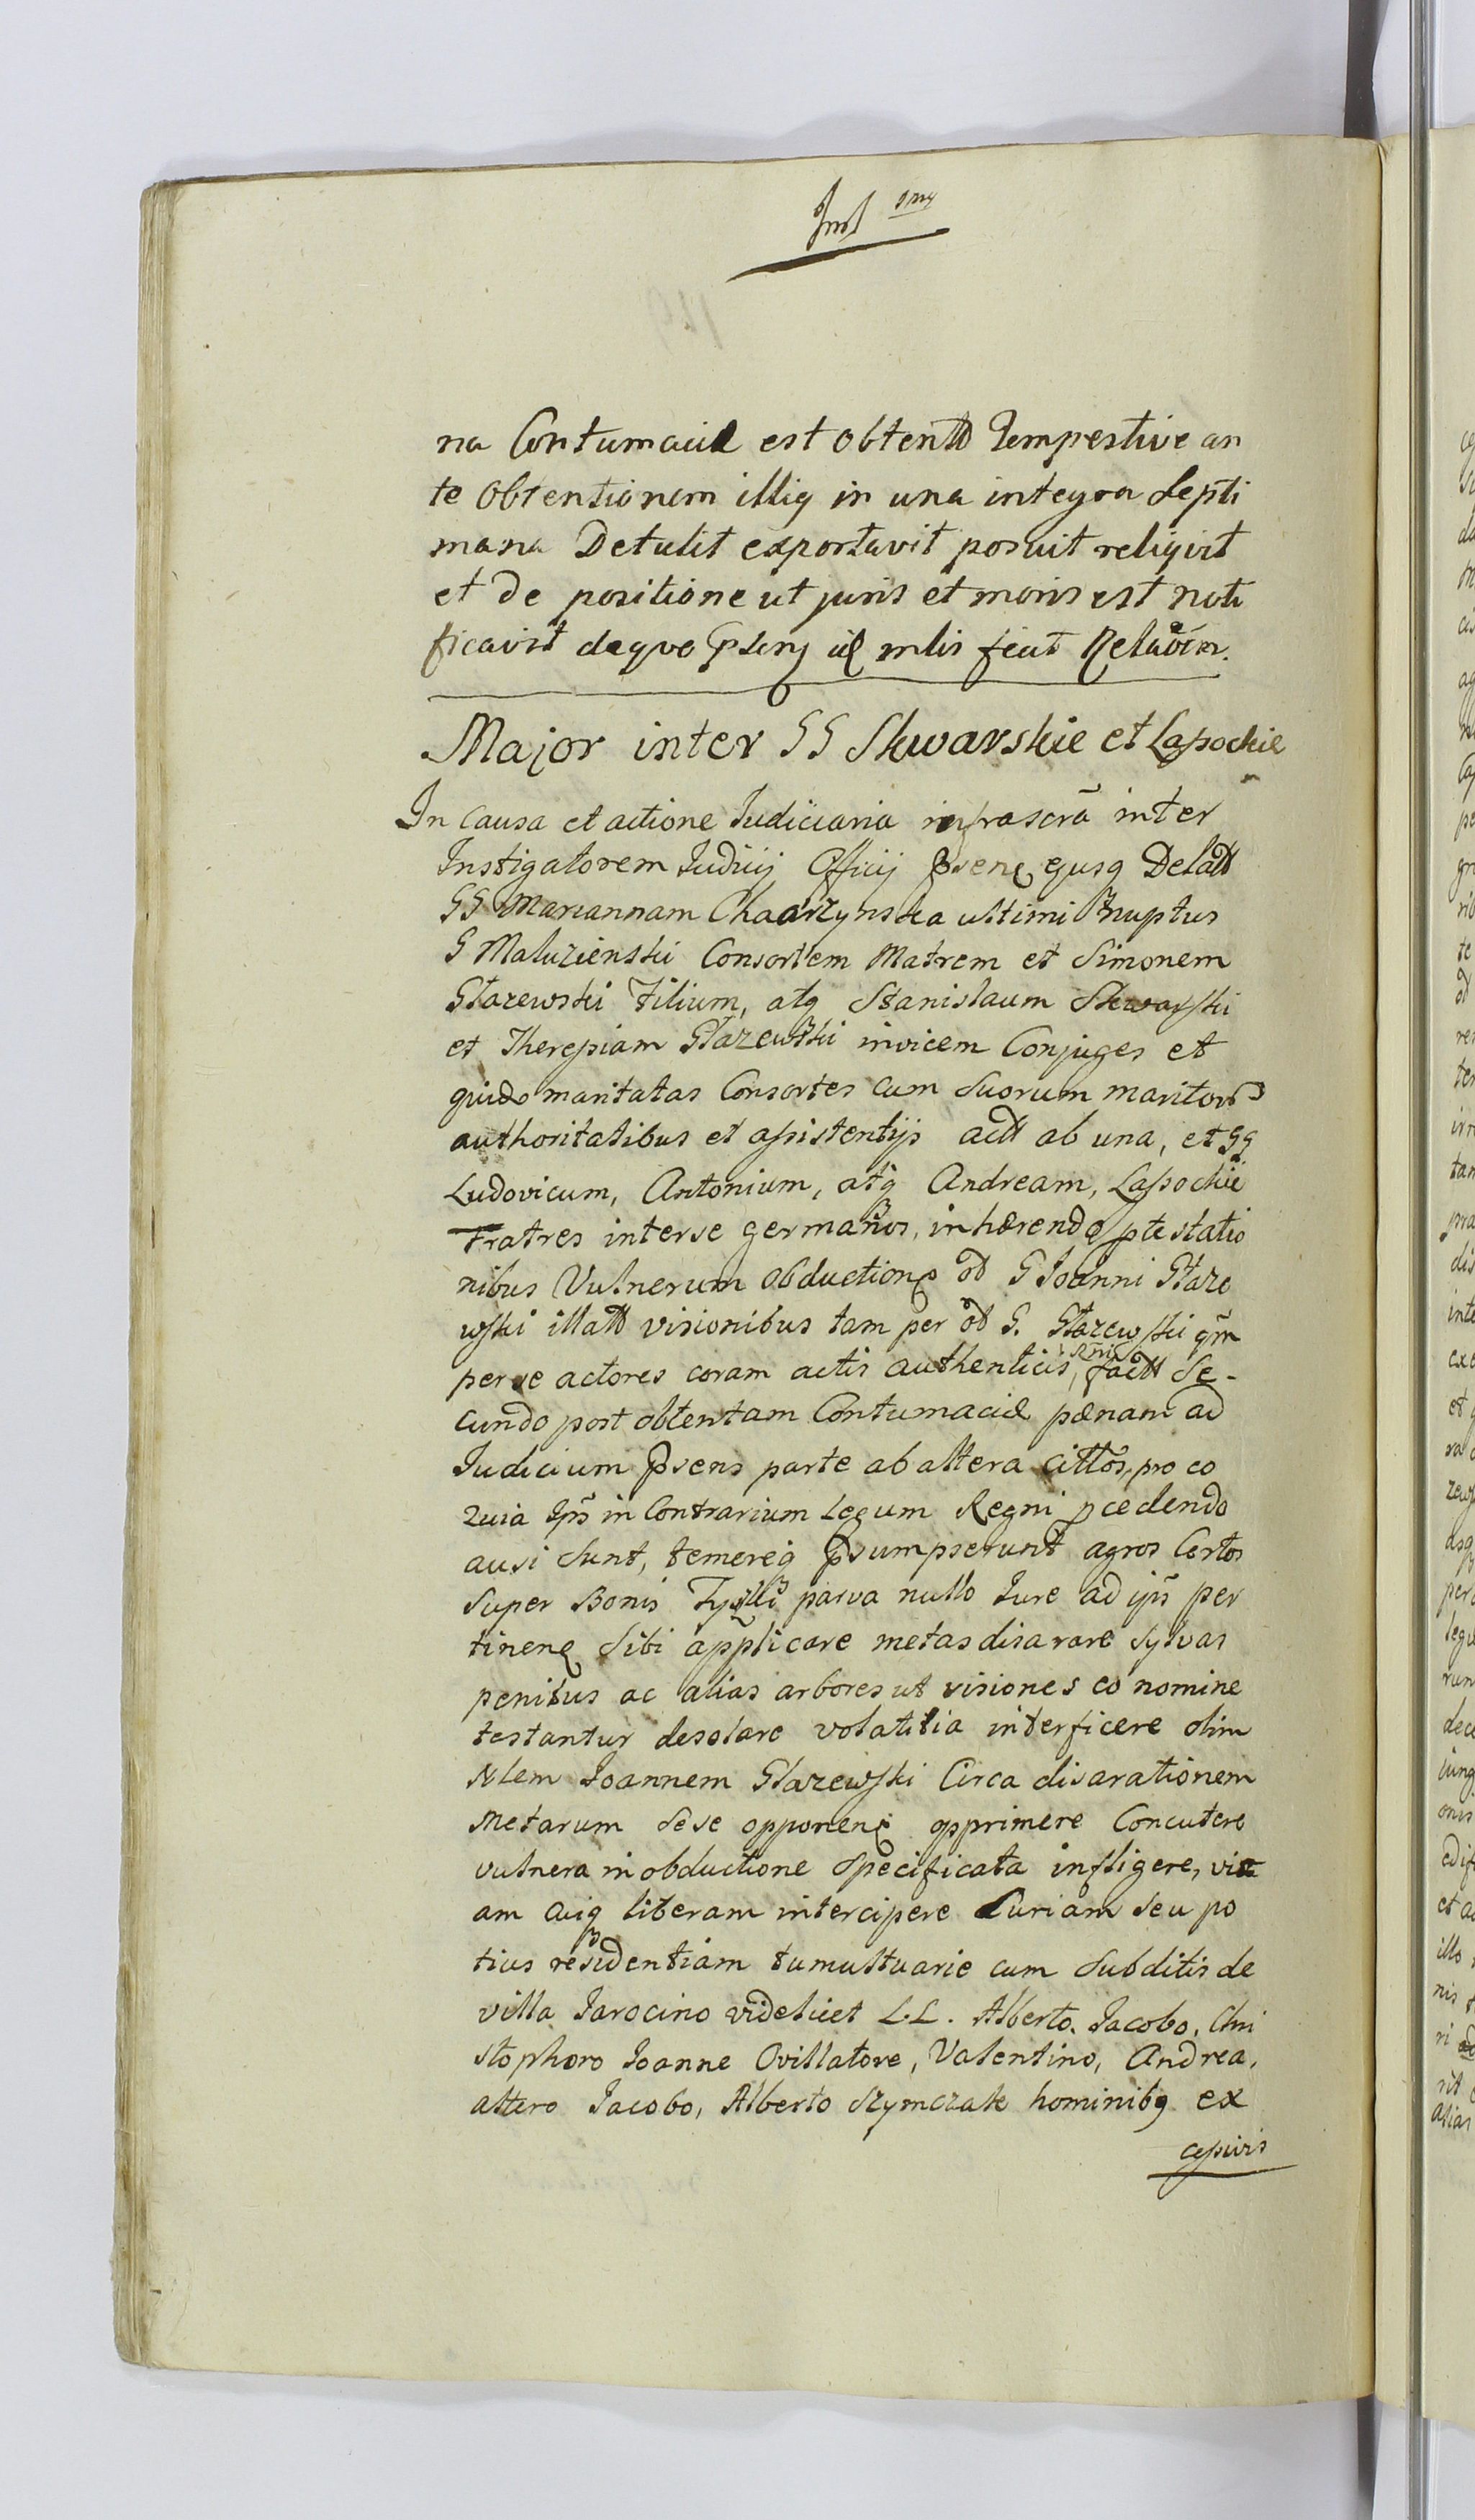 na Contumaciæ est obtentt Tempestive an
te obtentionem illig in una integra Septi
mana Detulit exportavit posuit reliqvit
et de positione ut juris et moris est noti
ficavit deqve mlis fecit Relaõem.
Major inter GG Skwarskie et Lasockie
In Causa et actione Judiciaria infrascrã inter
Instigatorem Judicij Officij ejusq Delatt
GG Mariannam ultimi nuptus
G Maluzienski Consortem Matrem et Simonem
Głazewski Filium, atq Stanislaum Skwarski
et Theressiam Głazewski invicem Conjuges et
quido maritatas Consortes cum Suorum maritor
authoritatibus et assistentijs actt ab una, et GG
Ludovicum, Antonium, atq Andream, Lasockie
Fratres interse germanos, inhærendo ptestatio
nibus Vulnerum obductione od G Joanni Głaze
wski illatt visionibus tam per od G. Głazewski qm
per se actores coram actis authenticis, factt Se-
cundo post obtentam Contumaciæ pænam ad
Judicium psens parte ab altera cittos, pro eo
Quia Ips in Contrarium Legum Regni pcedendo
ausi Sunt, temereq psumpserunt agros Certos
Super Bonis parva nullo Jure ad ips per
tinene Sibi applicare metas disarare Sylvas
penitus ac alias arbores ut visiones eo nomine
testantur desolare volatilia interficere olim
Nlem Joannem Głazewski Circa disarationem
Metarum Sese opponene opprimere Concutere
vulnera in obductione Specificata infligere, vi
am Cuiq liberam intercipere Curiam Seu po
tius residentiam tumultuarie cum Subditis de
villa Jarocino videlicet L.L. Alberto, Jacobo, Chri
stophoro Joanne Ovillatore, Valentino, Andrea,
altero Jacobo, Alberto Szymczak hominibq ex
cessivis